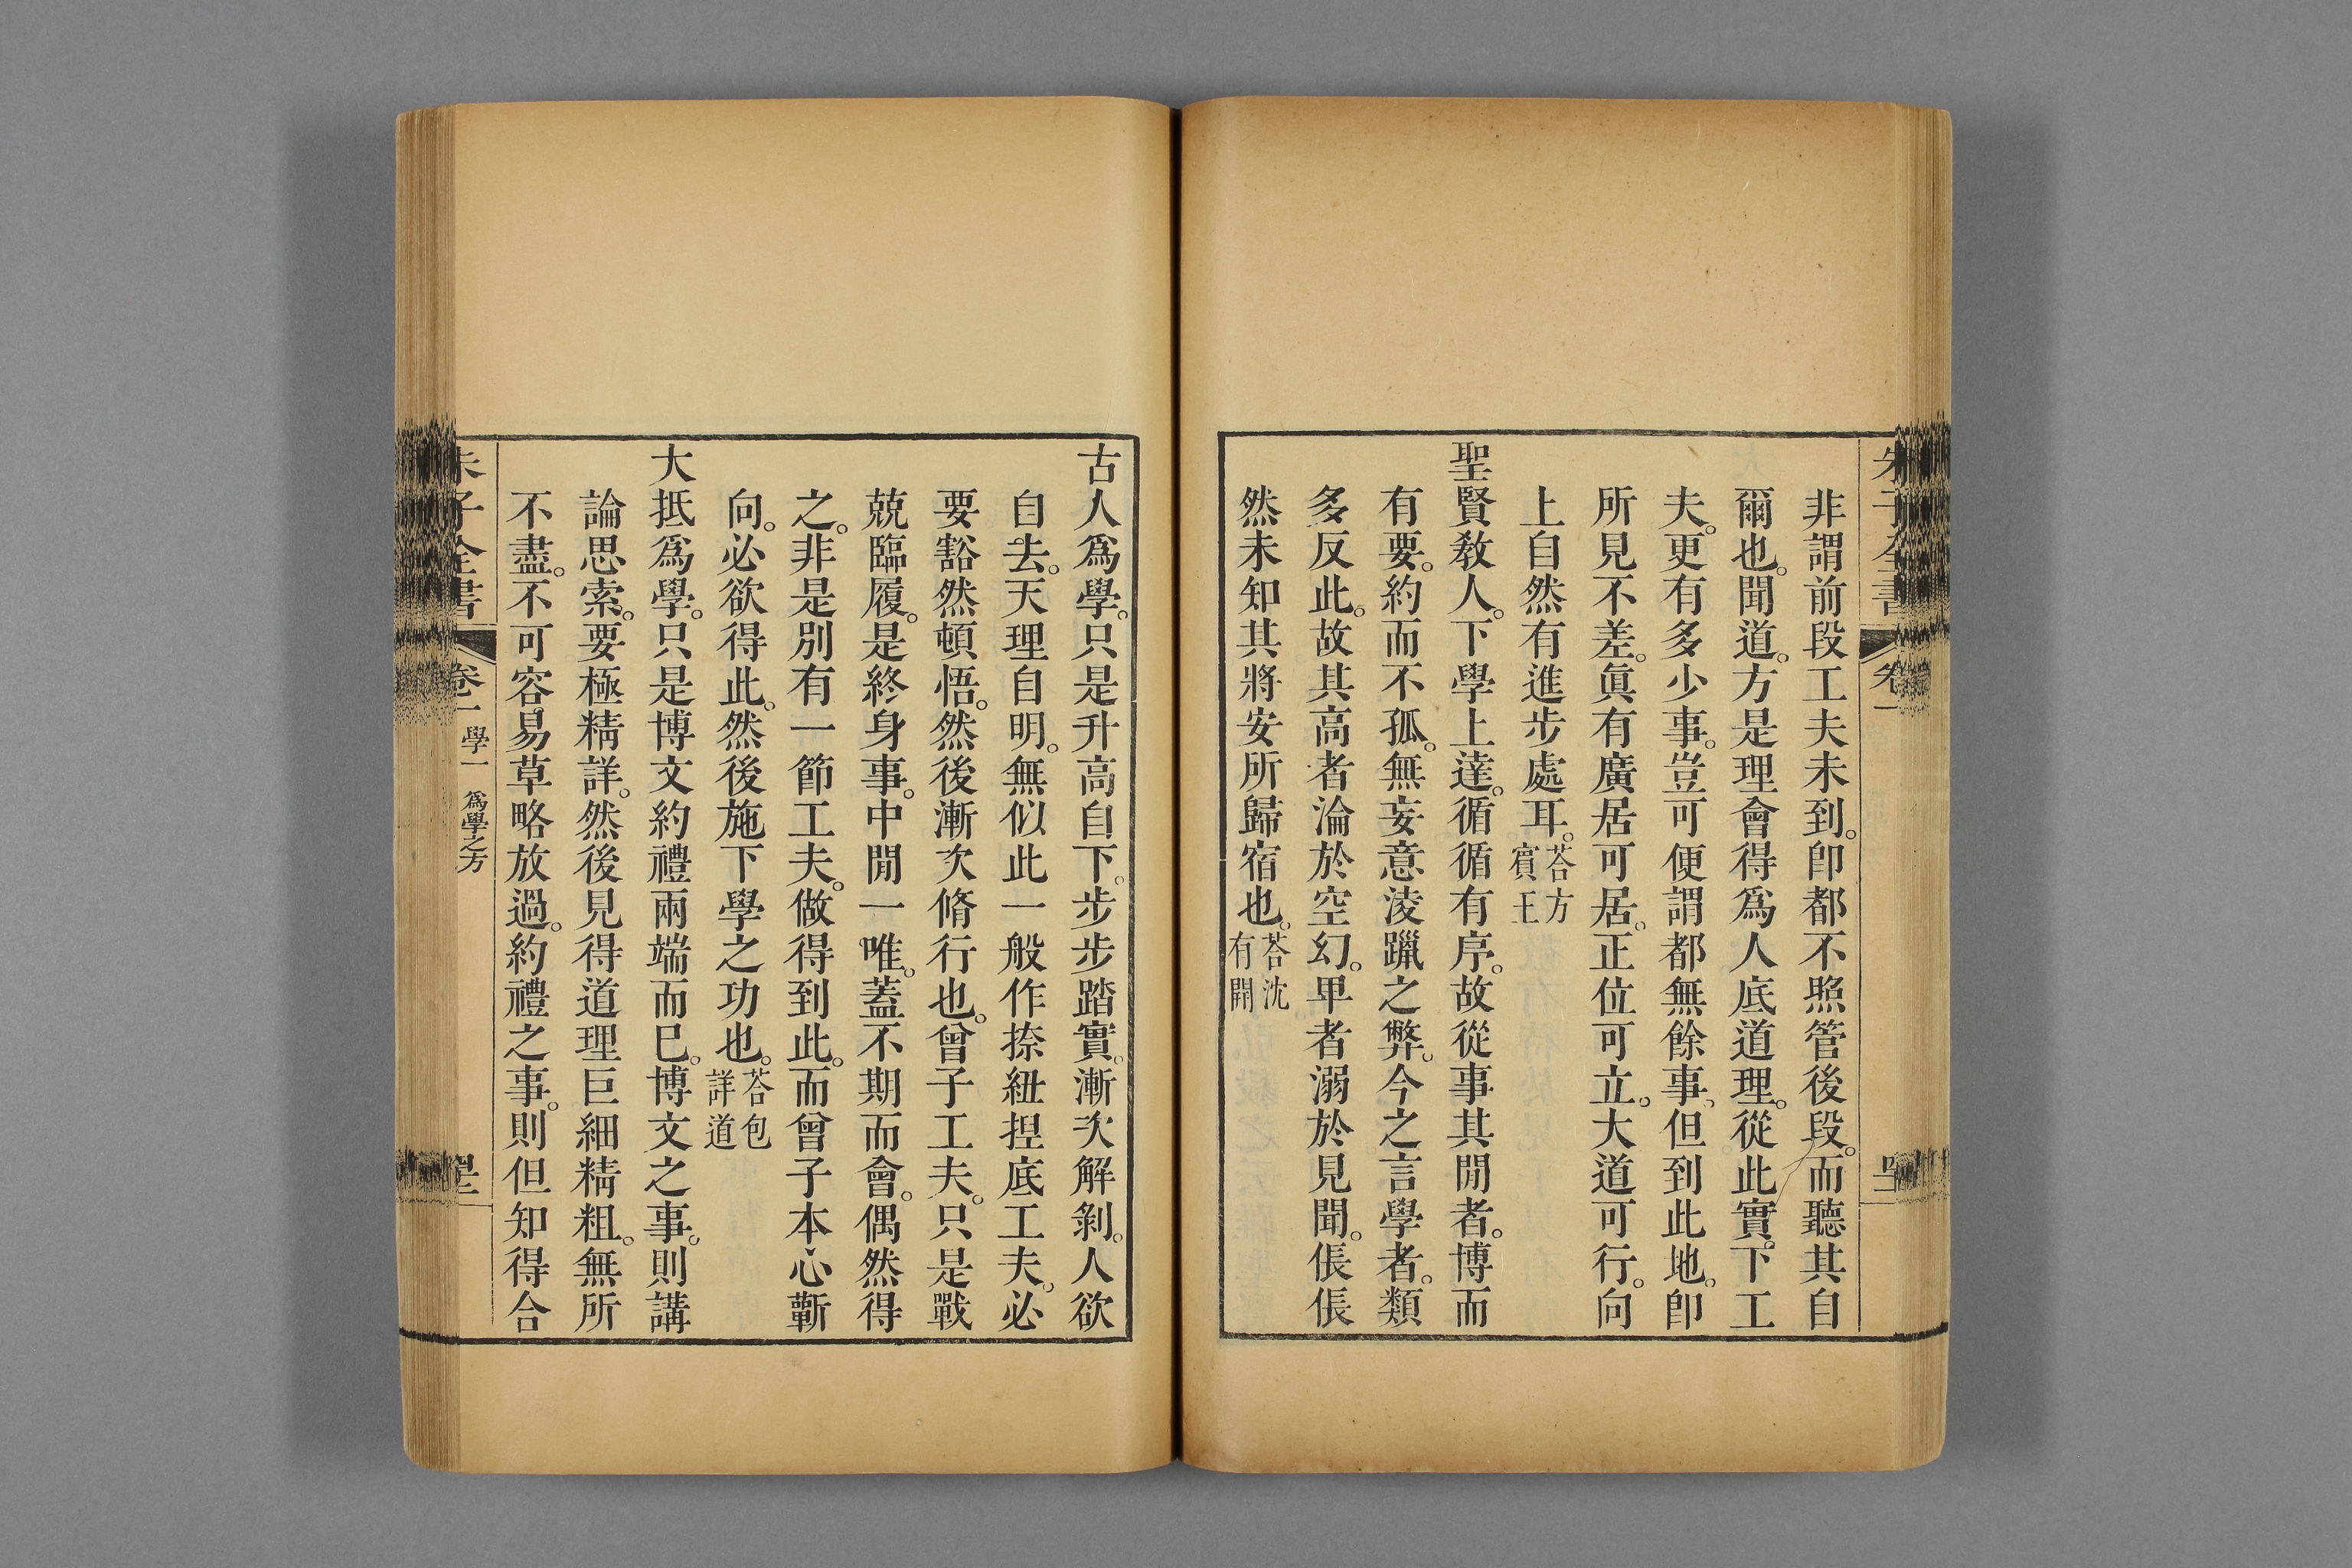 朱子全書 卷一
非謂前段工夫未到。卽都不照管後段。而聽其自
爾也。聞道。方是理會得爲人底道理。從此實。下工
夫。更有多少事。豈可便謂都無餘事。但到此地。卽
所見不差。眞有廣居可居。正位可立。大道可行。向
上自然有進步處耳。荅方賓王
聖賢敎人。下學上達。循循有序。故從事其閒者。博而
有要。約而不孤。無妄意淩躐之弊。今之言學者。類
多反此。故其高者淪於空幻。卑者溺於見聞。倀倀
然未知其將安所歸宿也。荅沈有開
古人爲學。只是升高自下。步步踏實。漸次解剝。人欲
自去。天理自明。無似此一般作捺紐捏底工夫。必
要豁然頓悟。然後漸次脩行也。曾子工夫。只是戰
兢臨履。是終身事。中閒一唯。蓋不期而會。偶然得
之。非是別有一節工夫。做得到此。而曾子本心蘄
向。必欲得此。然後施下學之功也。荅包詳道
大抵爲學。只是博文約禮兩端而已。博文之事。則講
論思索。要極精詳。然後見得道理巨細精粗。無所
不盡。不可容易草略放過。約禮之事。則但知得合
朱子全書 卷一 學一 爲學之方